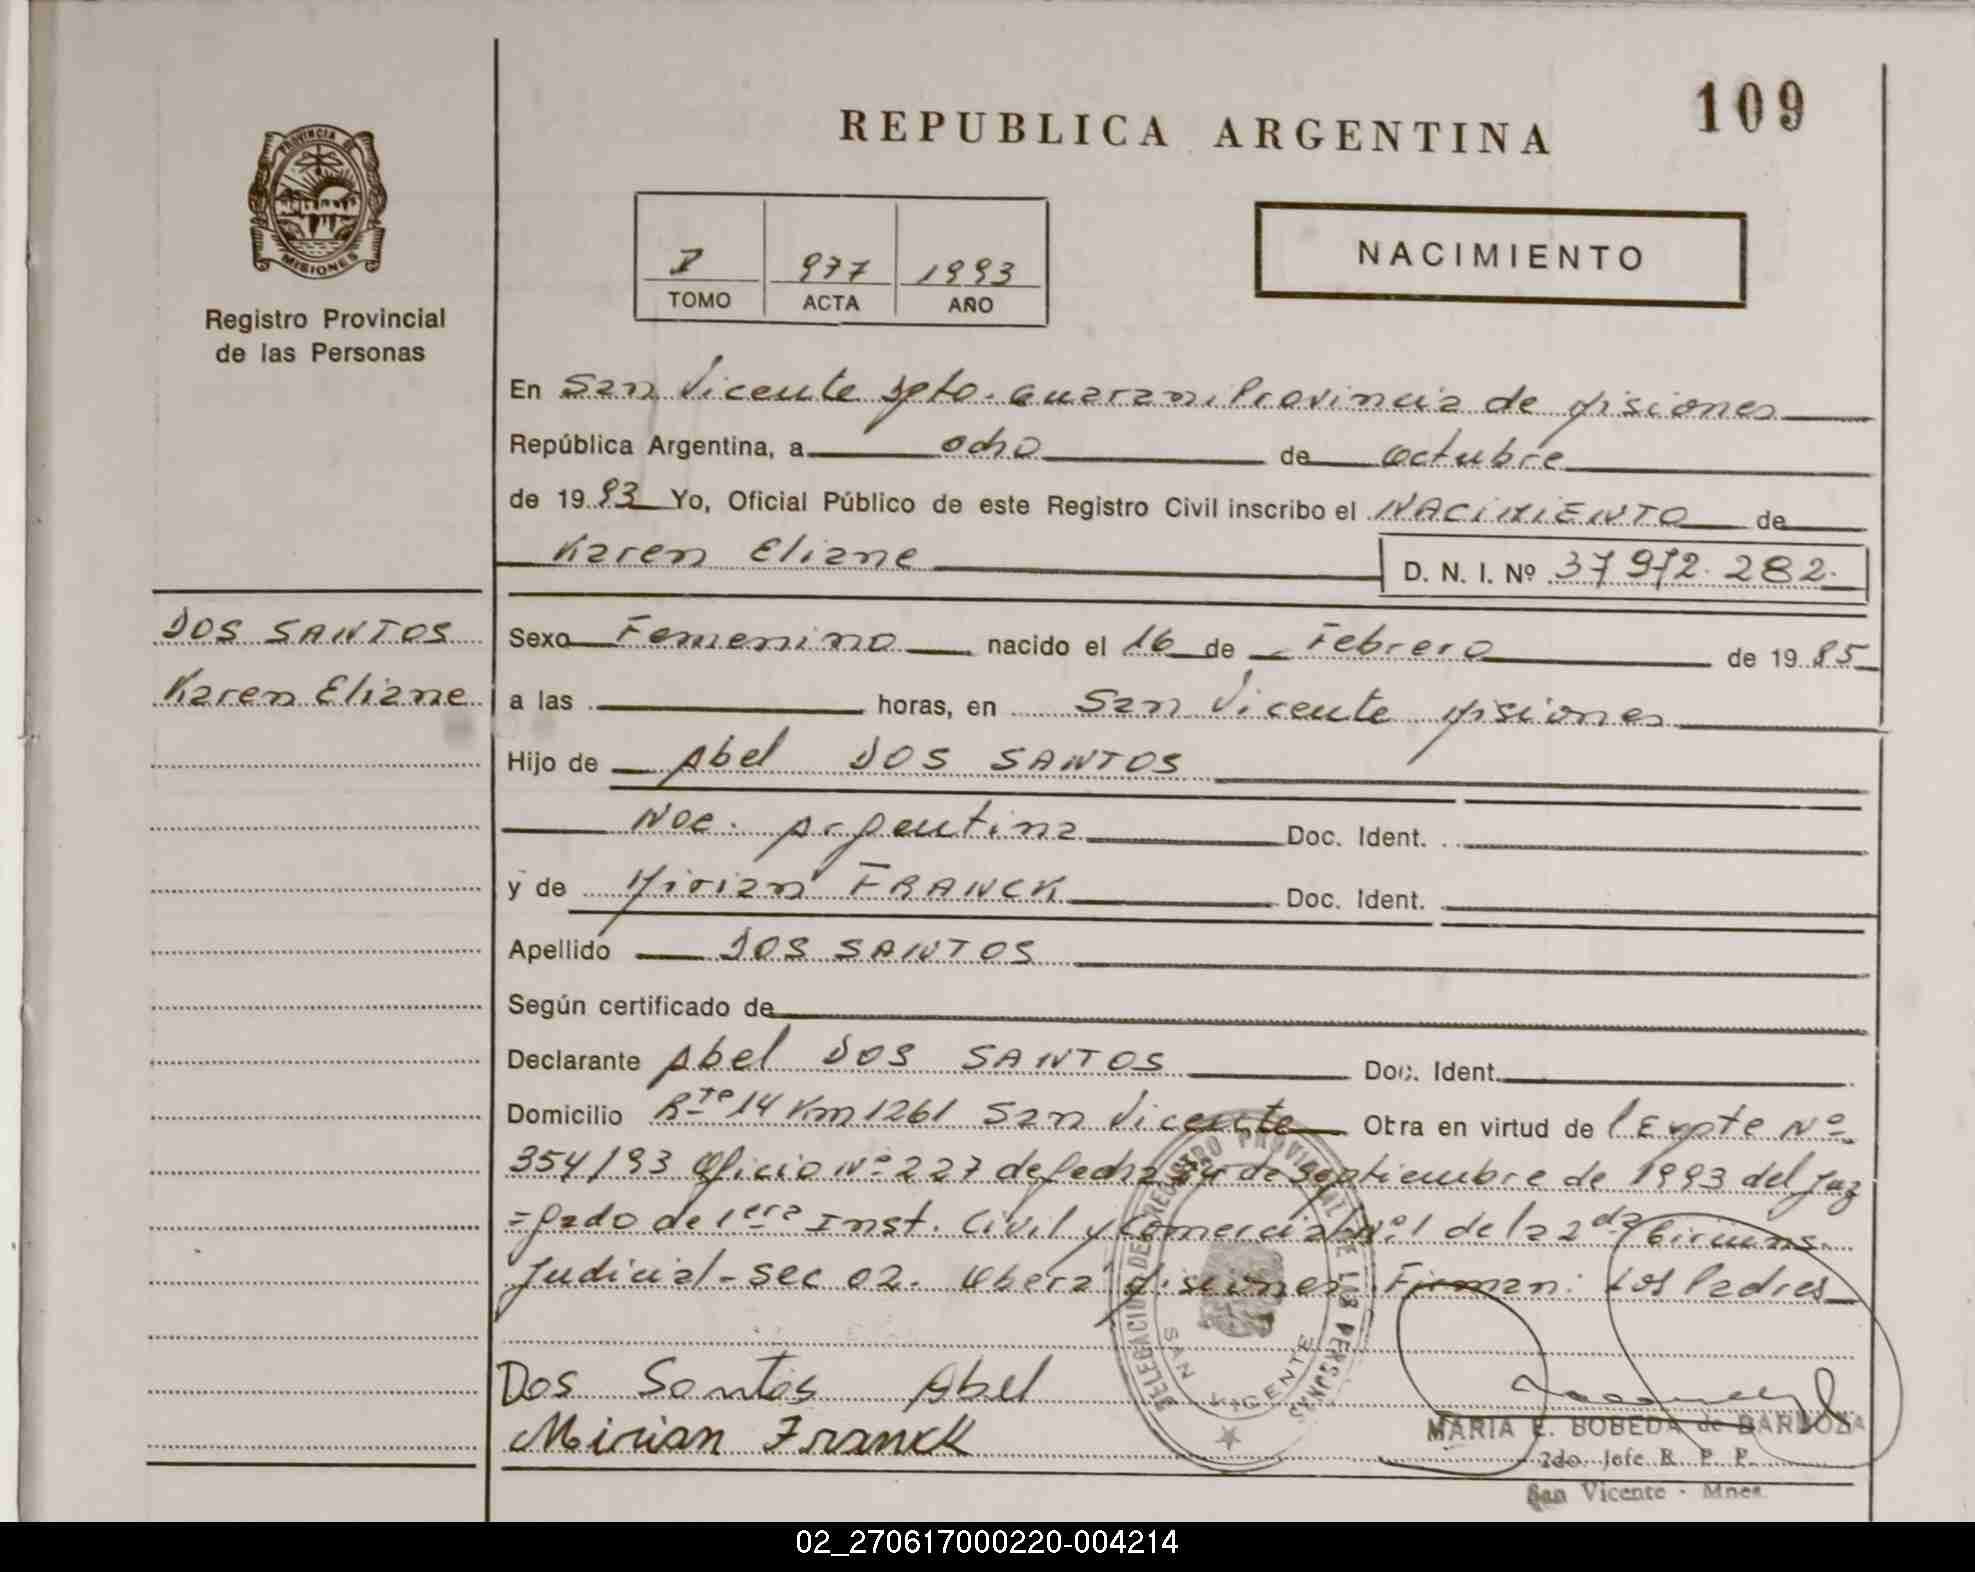 REPUBLICA ARGENTINA
109
PROVINCIA DE MISIONES
Registro Provincial
de las Personas
I 977 1993
TOMO ACTA AÑO
NACIMIENTO
En San Vicente Dpto. Guarani Provincia de Misiones
República Argentina, a ocho de octubre
de 1993 Yo, Oficial Público de este Registro Civil inscribo el NACIMIENTO de
Karen Eliane D. N. I. Nº 37 972.282.
DOS SANTOS
Karen Eliane
Sexo Femenino nacido el 16 de Febrero de 1985
a las horas, en San Vicente Misiones
Hijo de Abel DOS SANTOS
Nac. Argentina Doc. Ident.
y de Mirian FRANCK Doc. Ident.
Apellido DOS SANTOS
Según certificado de
Declarante Abel DOS SANTOS Doc. Ident.
Domicilio Rta 14 Km 1261 San Vicente Otra en virtud del Expte Nº
354/93 Oficio Nº 227 de fecha de Septiembre de 1993 del Juz
=gado de 1era Inst. Civil y Comercial Nº 1 de la 2da Circuns.
Judicial - Sec 02. Oberá Misiones. Firman: Los Padres
Dos Santos Abel
Mirian Franck
DELEGACION DEL REGISTRO PROVINCIAL DE LAS PERSONAS
SAN VICENTE
MARIA E. BOBEDA de BARBOZA
2do. Jefe R. P. P.
San Vicente - Mnes.
02_270617000220-004214